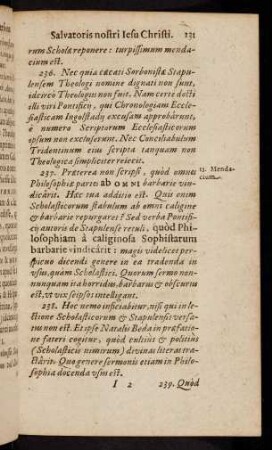 Salvatoris nostri Iesu Christi. 131
rum Scholæ reponere: turpissimum menda-
cium est.
236. Nec quia cæcati Sorbonistæ Stapu-
lensem Theologi nomine dignati non sunt,
idcirco Theologus non fuit. Nam certe docti
illi viri Pontificij, qui Chronologiam Eccle-
siasticam Ingolstadij excusam approbârunt,
è numero Scriptorum Ecclesiasticorum
ipsum non excluserunt. Nec Conciliabulum
Tridentinum eius scripta tanquam non
Theologica simpliciter reiecit.
237. Præterea non scripsi, quòd omnes
Philosophiæ partes ab OMNI barbarie vin-
dicârit. Hæc tua additio est. Quis enim
Scholasticorum stabulum ab omni caligine
& barbarie repurgaret? Sed verba Pontifi-
cij autoris de Stapulense retuli, quòd Phi-
losophiam à caliginosa Sophistarum
barbarie vindicârit: magis videlicet per-
spicuo dicendi genere in ea tradenda in
vsus, quàm Scholastici. Quorum sermo non-
nunquam ita horridus, barbarus & obscurus
est, vt vix seipsos intelligant.
238. Hoc nemo inficiabitur, nisi qui in le-
ctione Scholasticorum & Stapulensis versa-
tus non est. Et ipse Natalis Beda in præfatio-
ne fateri cogitur, quòd cultiùs & politiùs
(Scholasticis nimirum) divinas literas tra-
ctârit. Quo genere sermonis etiam in Philo-
sophia docenda vsus est.
I 2 239. Quòd
13. Menda-
cium.